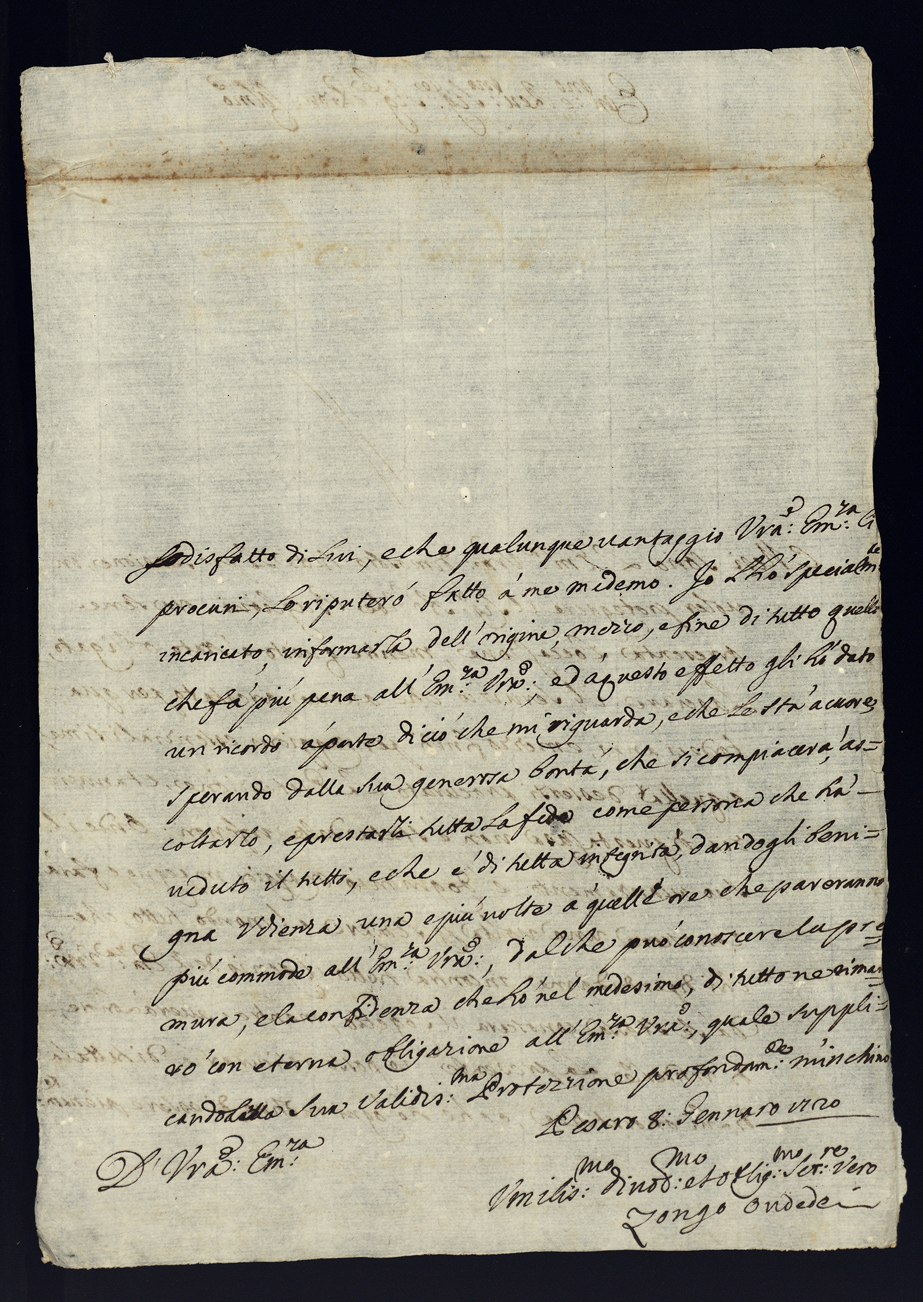 sodisfatto di Lui, e che qualunque vantaggio Vrã: Em:za Gl
procuri, Lo riputeró fatto á me medemo. Jo L'hó specialm:te
incaricato, informarla dell'origine, mezzo, e fine di tutto quello
che fá piú pena all'Em:za Vrã:, ed a questo effetto gli hó dato
un ricordo á parte di ció che mi riguarda, e che Le stá a cuore,
sperando dalla sua generosa bontá, che si compiacerá, as=
coltarlo, e prestarli tutta La fede come persona che há
veduto il tutto, e che é di tutta integritá, dandogli beni=
gna Udienza una e piú volte á quelle ore che pareranno
piú commode all'Em:za Vrã:, dal che puó conoscere la pre=
mura, e la confidenza che hó nel medesimo, di tutto ne rimar=
ró con eterna obligazione all'Em:za Vrã:, quale suppli=
candola della sua Validis:ma Protezzione profondam:te m'inchino
Pesaro 8: Gennaro 1720
D' Vrã: Em:za
Umilis:mo divot:mo et oblig:mo Ser:re Vero
Zongo Ondedei